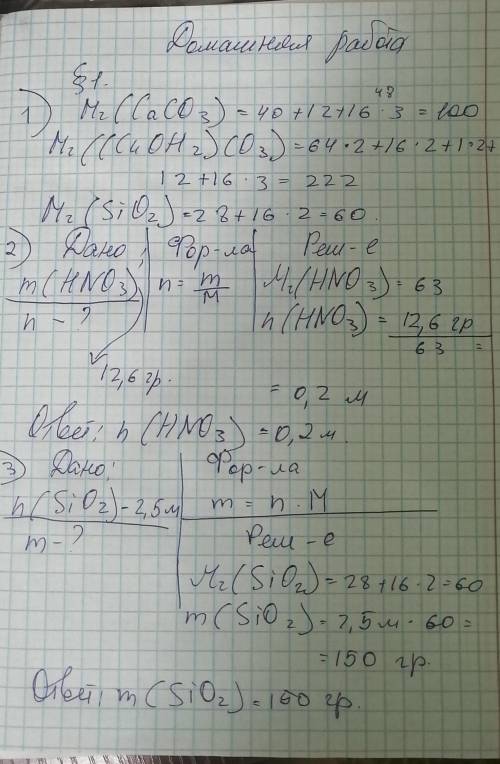 Домашняя работа
§1.
1) Mr(CaCO3) = 40+12+16·3 = 100
48
Mr((CuOH2)CO3) = 64·2+16·2+1·2+
12+16·3 = 222
Mr(SiO2) = 28+16·2=60.
2) Дано; Фор-ла Реш-е
m(HNO3) n = m/M Mr(HNO3) = 63
n - ? n(HNO3) = 12,6 гр / 63 =
12,6 гр.
= 0,2 м
Ответ: n(HNO3) = 0,2 м.
3) Дано: Фор-ла
n(SiO2) - 2,5м m = n · M
m - ? Реш-е
Mr(SiO2) = 28+16·2=60
m(SiO2) = 2,5м · 60 =
= 150 гр.
Ответ: m(SiO2) = 150 гр.